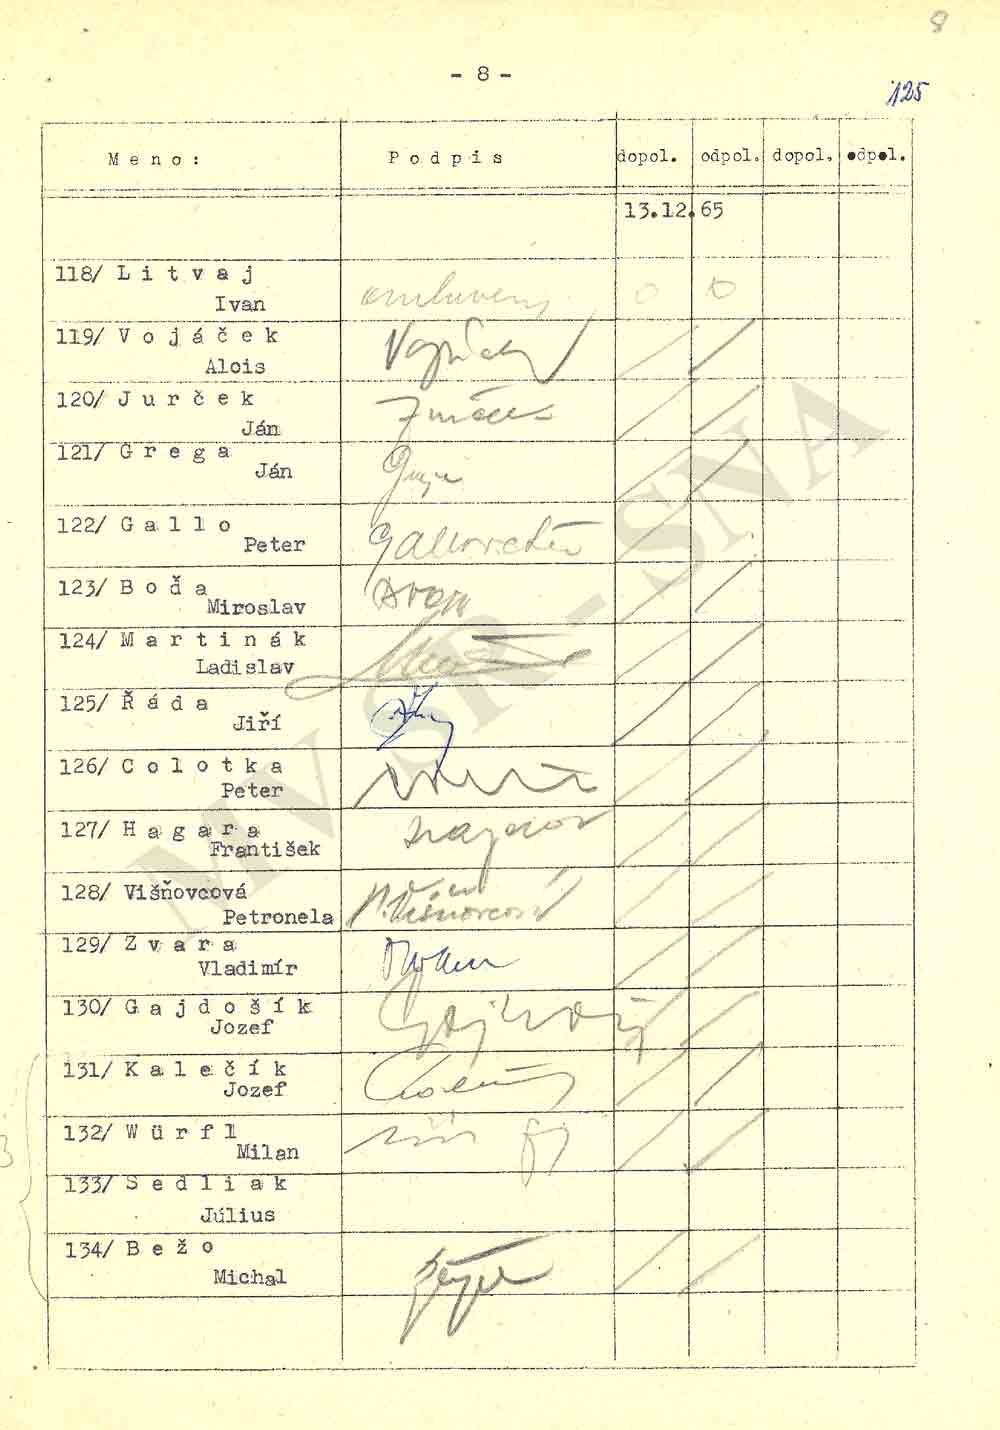 8
- 8 -
125
Meno: Podpis dopol. odpol. dopol. odpol.
13.12.65
118/ Litvaj
Ivan
119/ Vojáček
Alois
120/ Jurček
Ján
121/ Grega
Ján
122/ Gallo
Peter
123/ Boďa
Miroslav
124/ Martinák
Ladislav
125/ Řáda
Jiří
126/ Colotka
Peter
127/ Hagara
František
128/ Višňovcová
Petronela
129/ Zvara
Vladimír
130/ Gajdošík
Jozef
131/ Kalečík
Jozef
132/ Würfl
Milan
133/ Sedliak
Július
134/ Bežo
Michal
MV SR - SNA